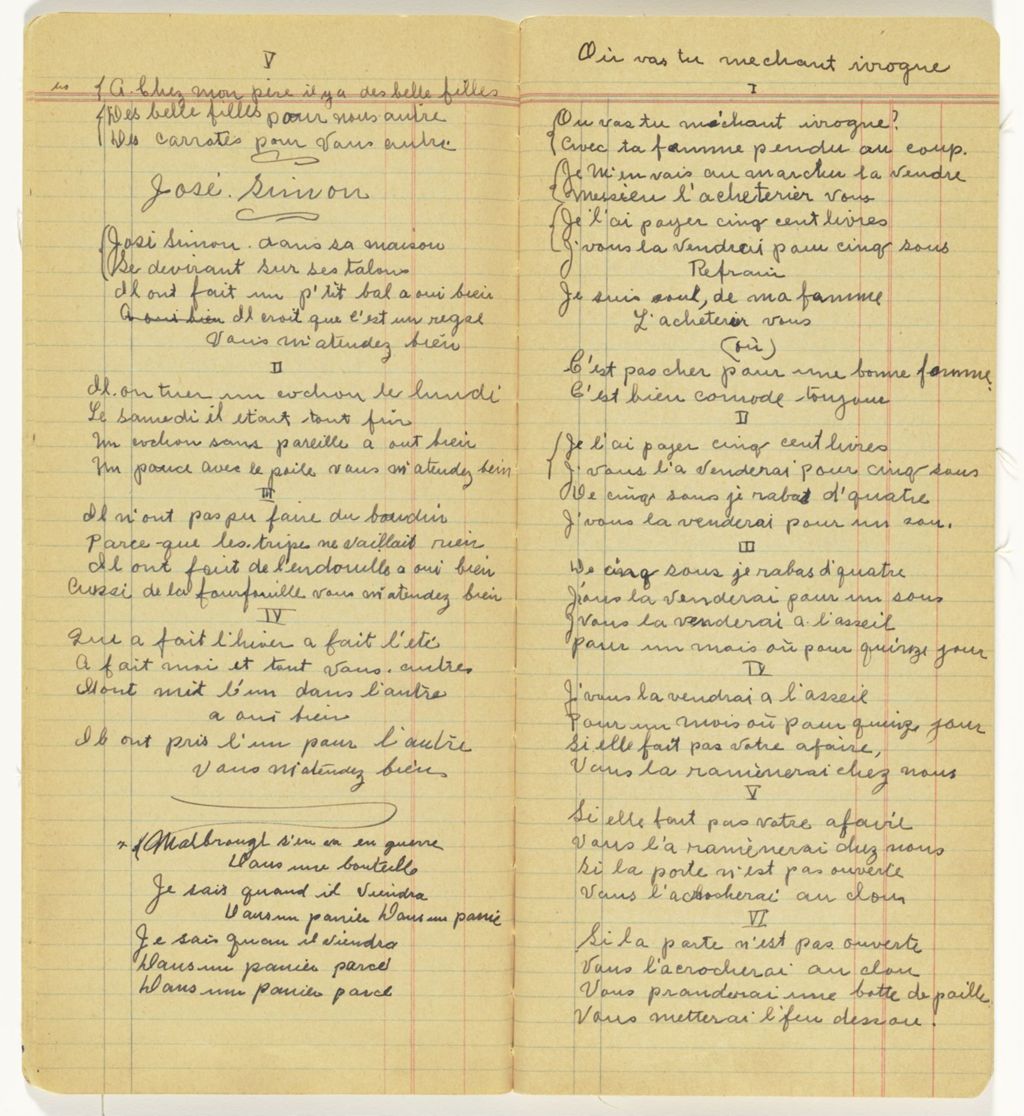 V
bis { A. Chez mon père il y a des belle filles
{ Des belle filles pour nous autre
{ Des carrotes pour vous autre
José. Simon
{ José Simon. dans sa maison
{ Se devirant sur ses talons
Il ont fait un p'tit bal a oui bien
A oui bien Il croit que c'est un regal
Vous m'atendez bien
II
Il. on tuer un cochon le lundi
Le samedi il etait tout fin
Un cochon sans pareille a oui bien
Un pouce avec le poile vous m'atendez bein
III
Il n'ont pas pu faire du boudin
Parce-que les tripe ne vaillait rien
Il ont fait de l'endouille a oui bien
Aussi de la fourfouille vous m'atendez bien
IV
Que a fait l'hiver a fait l'été
A fait moi et tout vous. autres
Ils ont mit l'un dans l'autre
a oui bien
Il ont pris l'un pour l'autre
Vous m'atendez bien
* { Malbrougt s'en va en guerre
Dans une bouteille
Je sais quand il viendra
Dans un panier Dans un panié
Je sais quan il viendra
Dans un panier parcé
Dans un panier parcé
Où vas tu mechant ivrogne
I
{ Ou vas tu méchant ivrogne?
{ Avec ta famme pendu au coup.
{ Je M'en vais au marcher la vendre
{ Messieu l'acheterier vous
{ Je l'ai payer cinq cent livres
{ J'vous la vendrai pour cinq sous
Refrain
Je suis soul, de ma famme
L'acheterier vous
(où)
C'est pas cher pour une bonne famme
C'est bien comode toujour
II
{ Je l'ai payer cinq cent livres
{ J'vous l'a venderai pour cinq sous
De cinq sous je rabat d'quatre
J'vous la venderai pour un sou.
III
De cinq sous je rabas d'quatre
J'vous la venderai pour un sous
J'vous la venderai a l'asseil
Pour un mois où pour quinze jour
IV
J'vous la vendrai a l'asseil
Pour un mois où pour quinze jour
Si elle fait pas votre afaire,
Vous la ramènerai chez nous
V
Si elle fait pas votre afaire
Vous l'a ramènerai chez nous
Si la porte n'est pas ouverte
Vous l'acrocherai au clou
VI
Si la porte n'est pas ouverte
Vous l'acrocherai au clou
Vous pranderai une botte de paille
Vous metterai l'feu dessou.